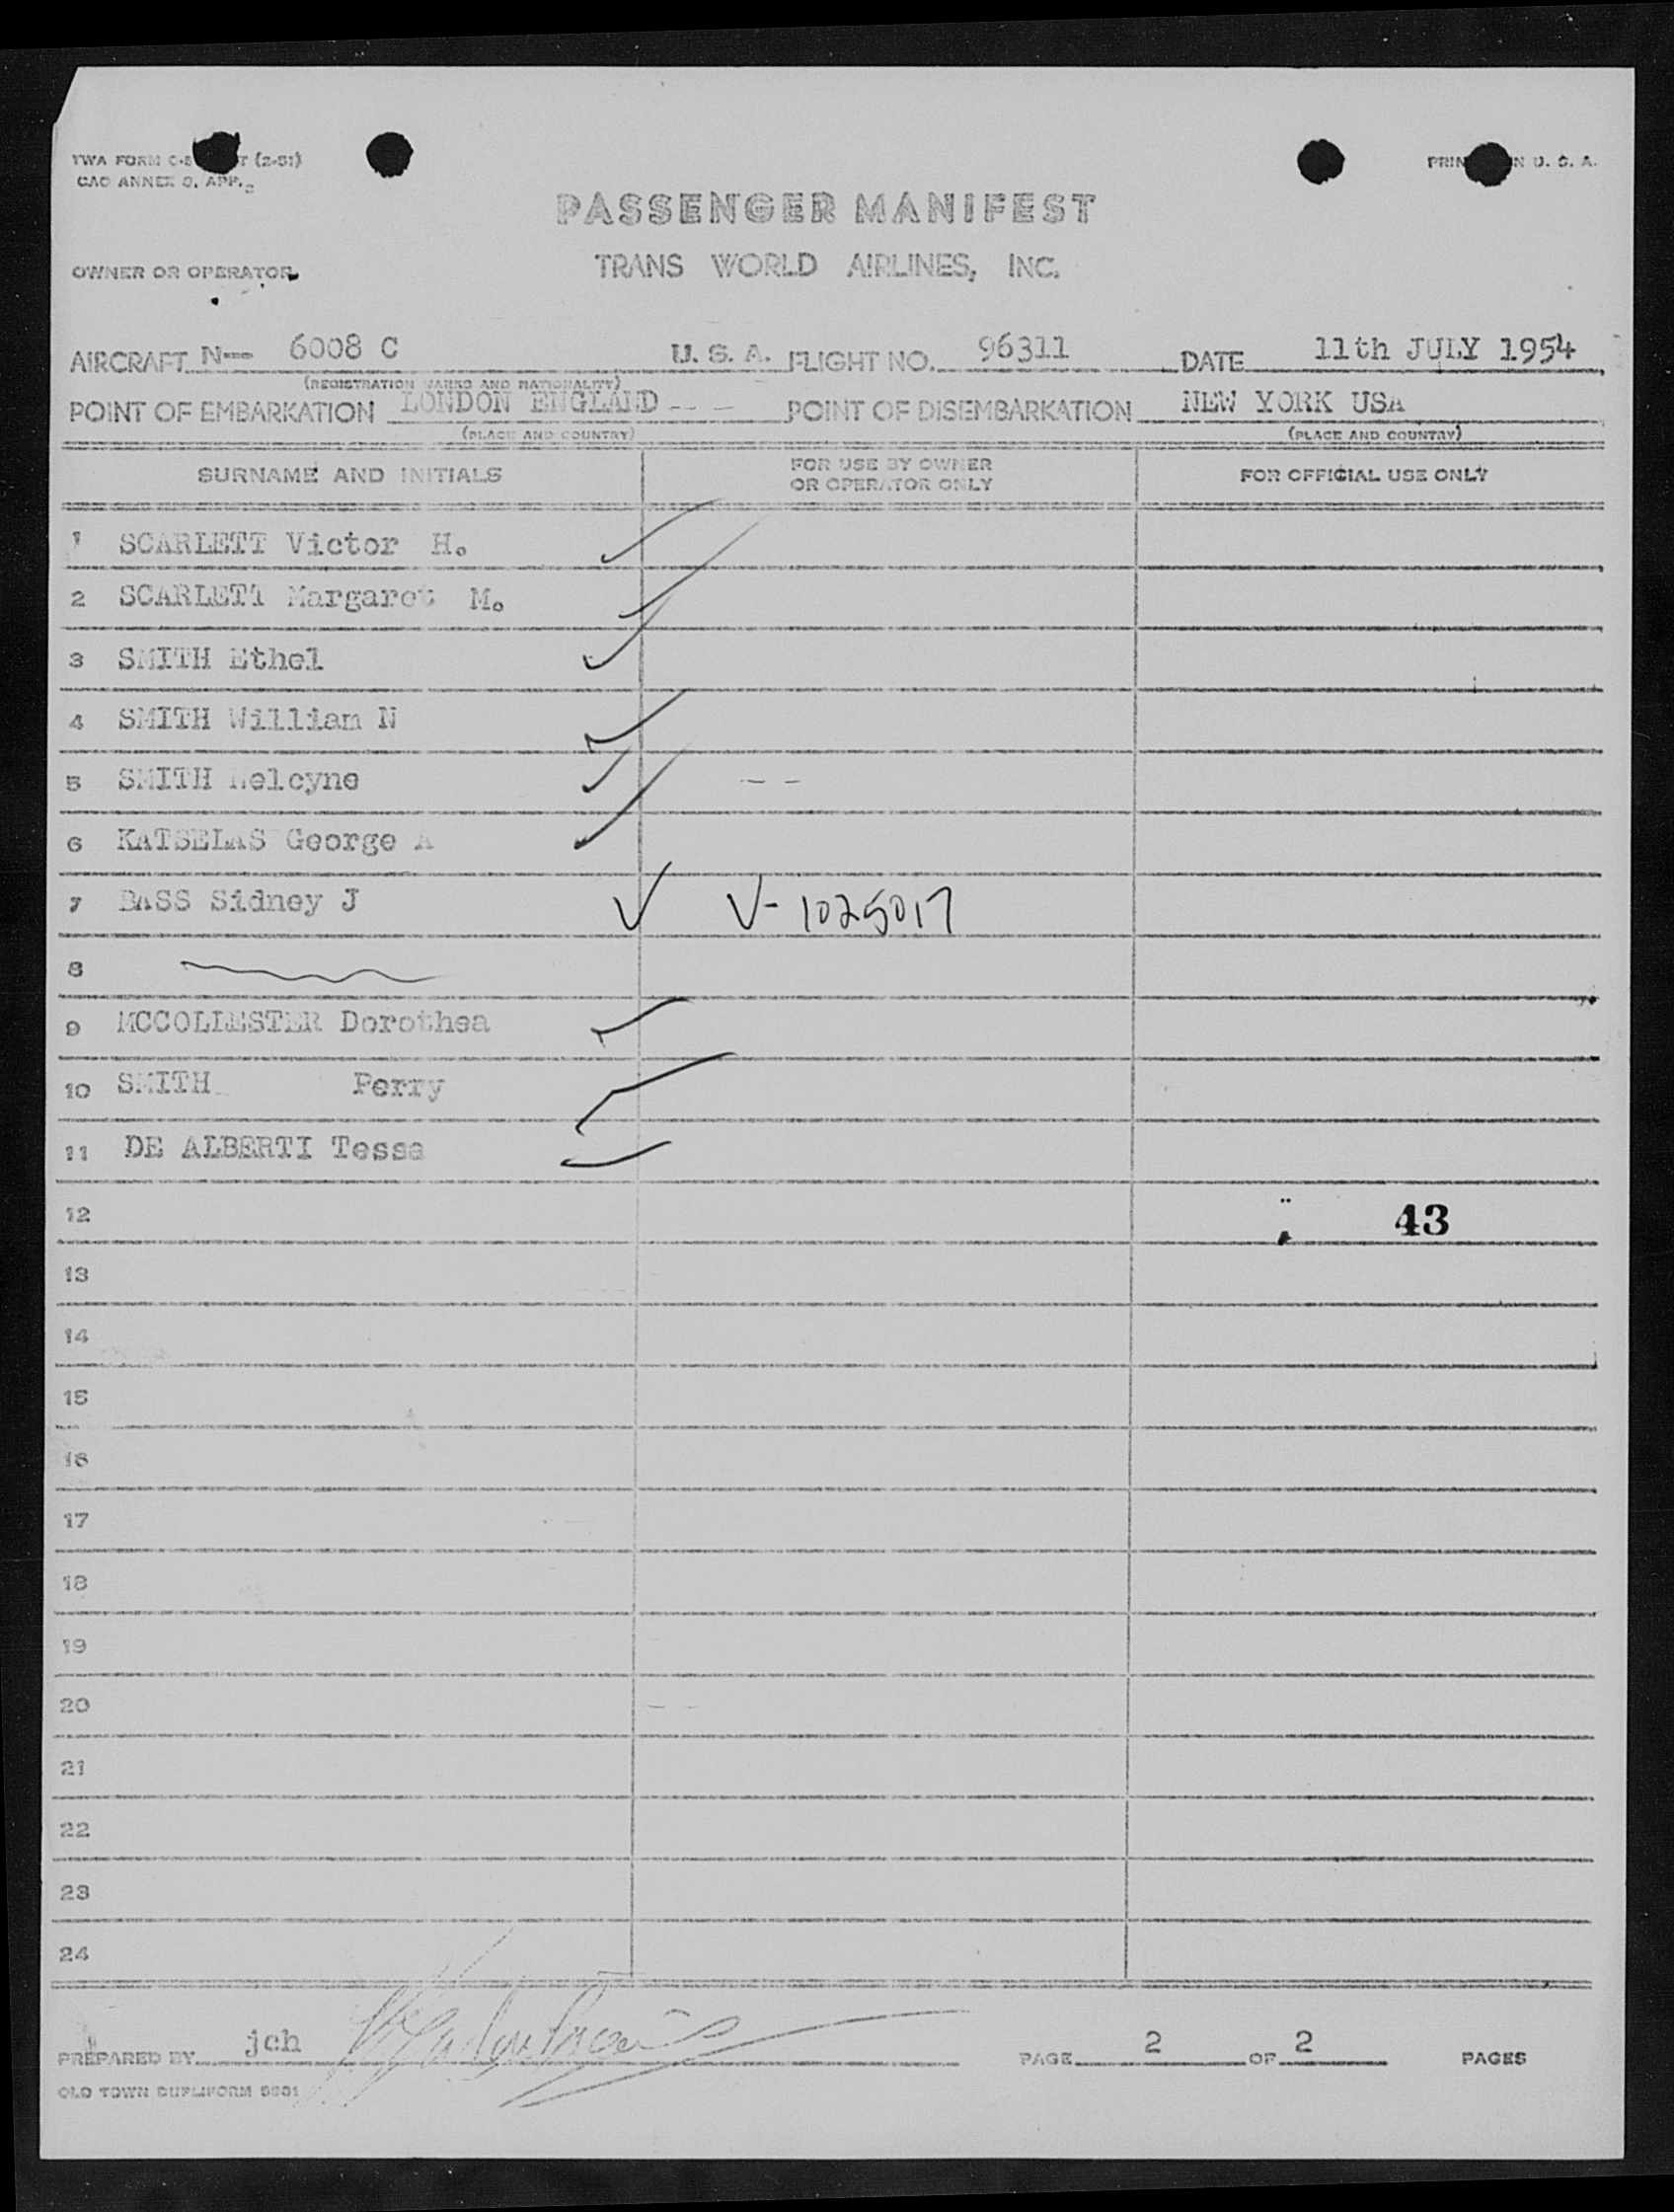 TWA FORM (2-51) PRIN IN U. S. A.
CAO ANNEX 9, APP.
PASSENGER MANIFEST
OWNER OR OPERATOR TRANS WORLD AIRLINES, INC.
AIRCRAFT N--- 6008 C U. S. A. FLIGHT NO. 96311 DATE 11th JULY 1954
(REGISTRATION MARKS AND NATIONALITY)
POINT OF EMBARKATION LONDON ENGLAND POINT OF DISEMBARKATION NEW YORK USA
(PLACE AND COUNTRY) (PLACE AND COUNTRY)
SURNAME AND INITIALS FOR USE BY OWNER OR OPERATOR ONLY FOR OFFICIAL USE ONLY
1 SCARLETT Victor H.
2 SCARLETT Margaret M.
3 SMITH Ethel
4 SMITH William N
5 SMITH
6 KATSELAS George A
7 BASS Sidney J V-1025017
8
9 MCCOLLESTER Dorothea
10 SMITH Perry
11 DE ALBERTI Tessa
12 43
13
14
15
16
17
18
19
20
21
22
23
24
PREPARED BY jch PAGE 2 OF 2 PAGES
OLD TOWN DUPLIFORM